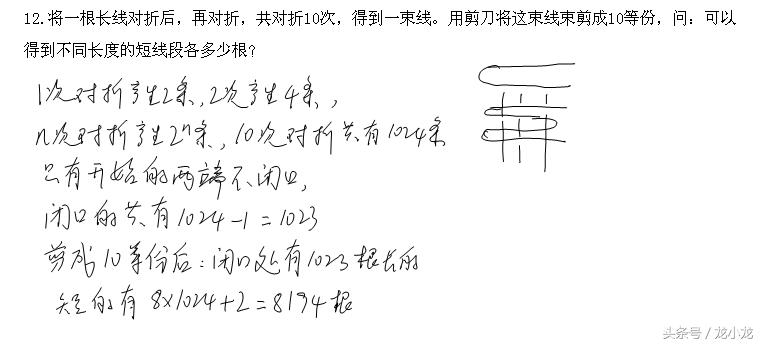 12.将一根长线对折后，再对折，共对折10次，得到一束线。用剪刀将这束线束剪成10等份，问：可以
得到不同长度的短线段各多少根？
1次对折产生2条，2次产生4条，
n次对折产生2ⁿ条，10次对折共有1024条
只有开始的两端不闭口，
闭口的共有1024-1=1023
剪成10等份后：闭口处有1023根长的
短的有 8×1024+2=8194根
头条号／龙小龙